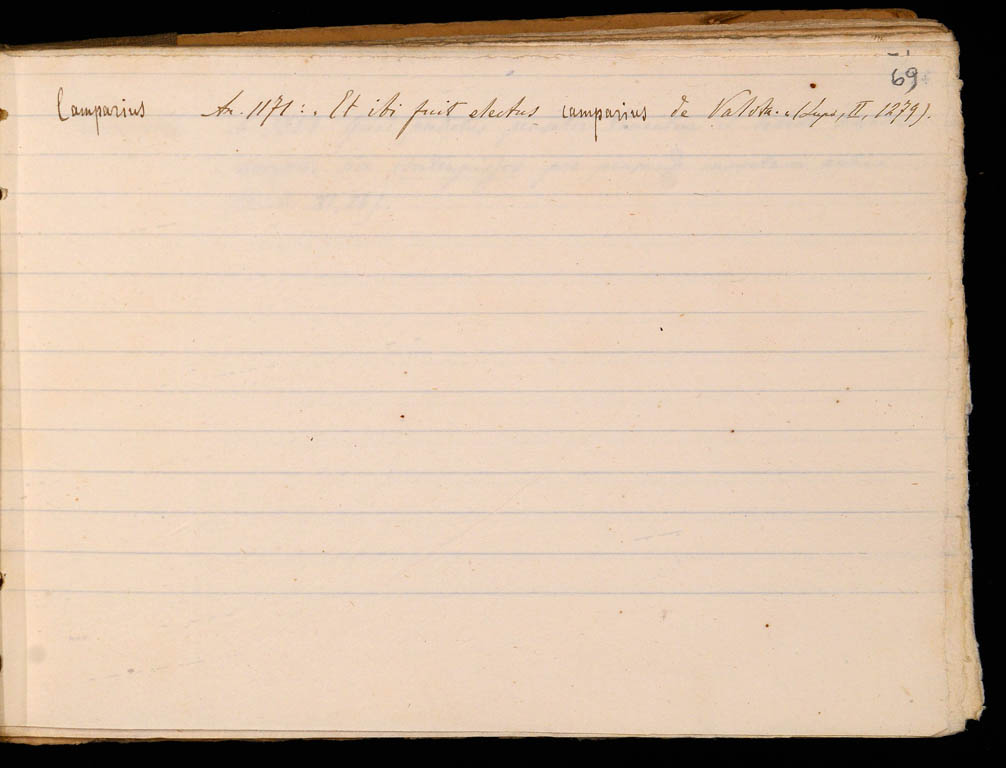 69
Camparius An. 1171: « Et ibi fuit electus camparius de Valota. » (Lupi, II, 1279).